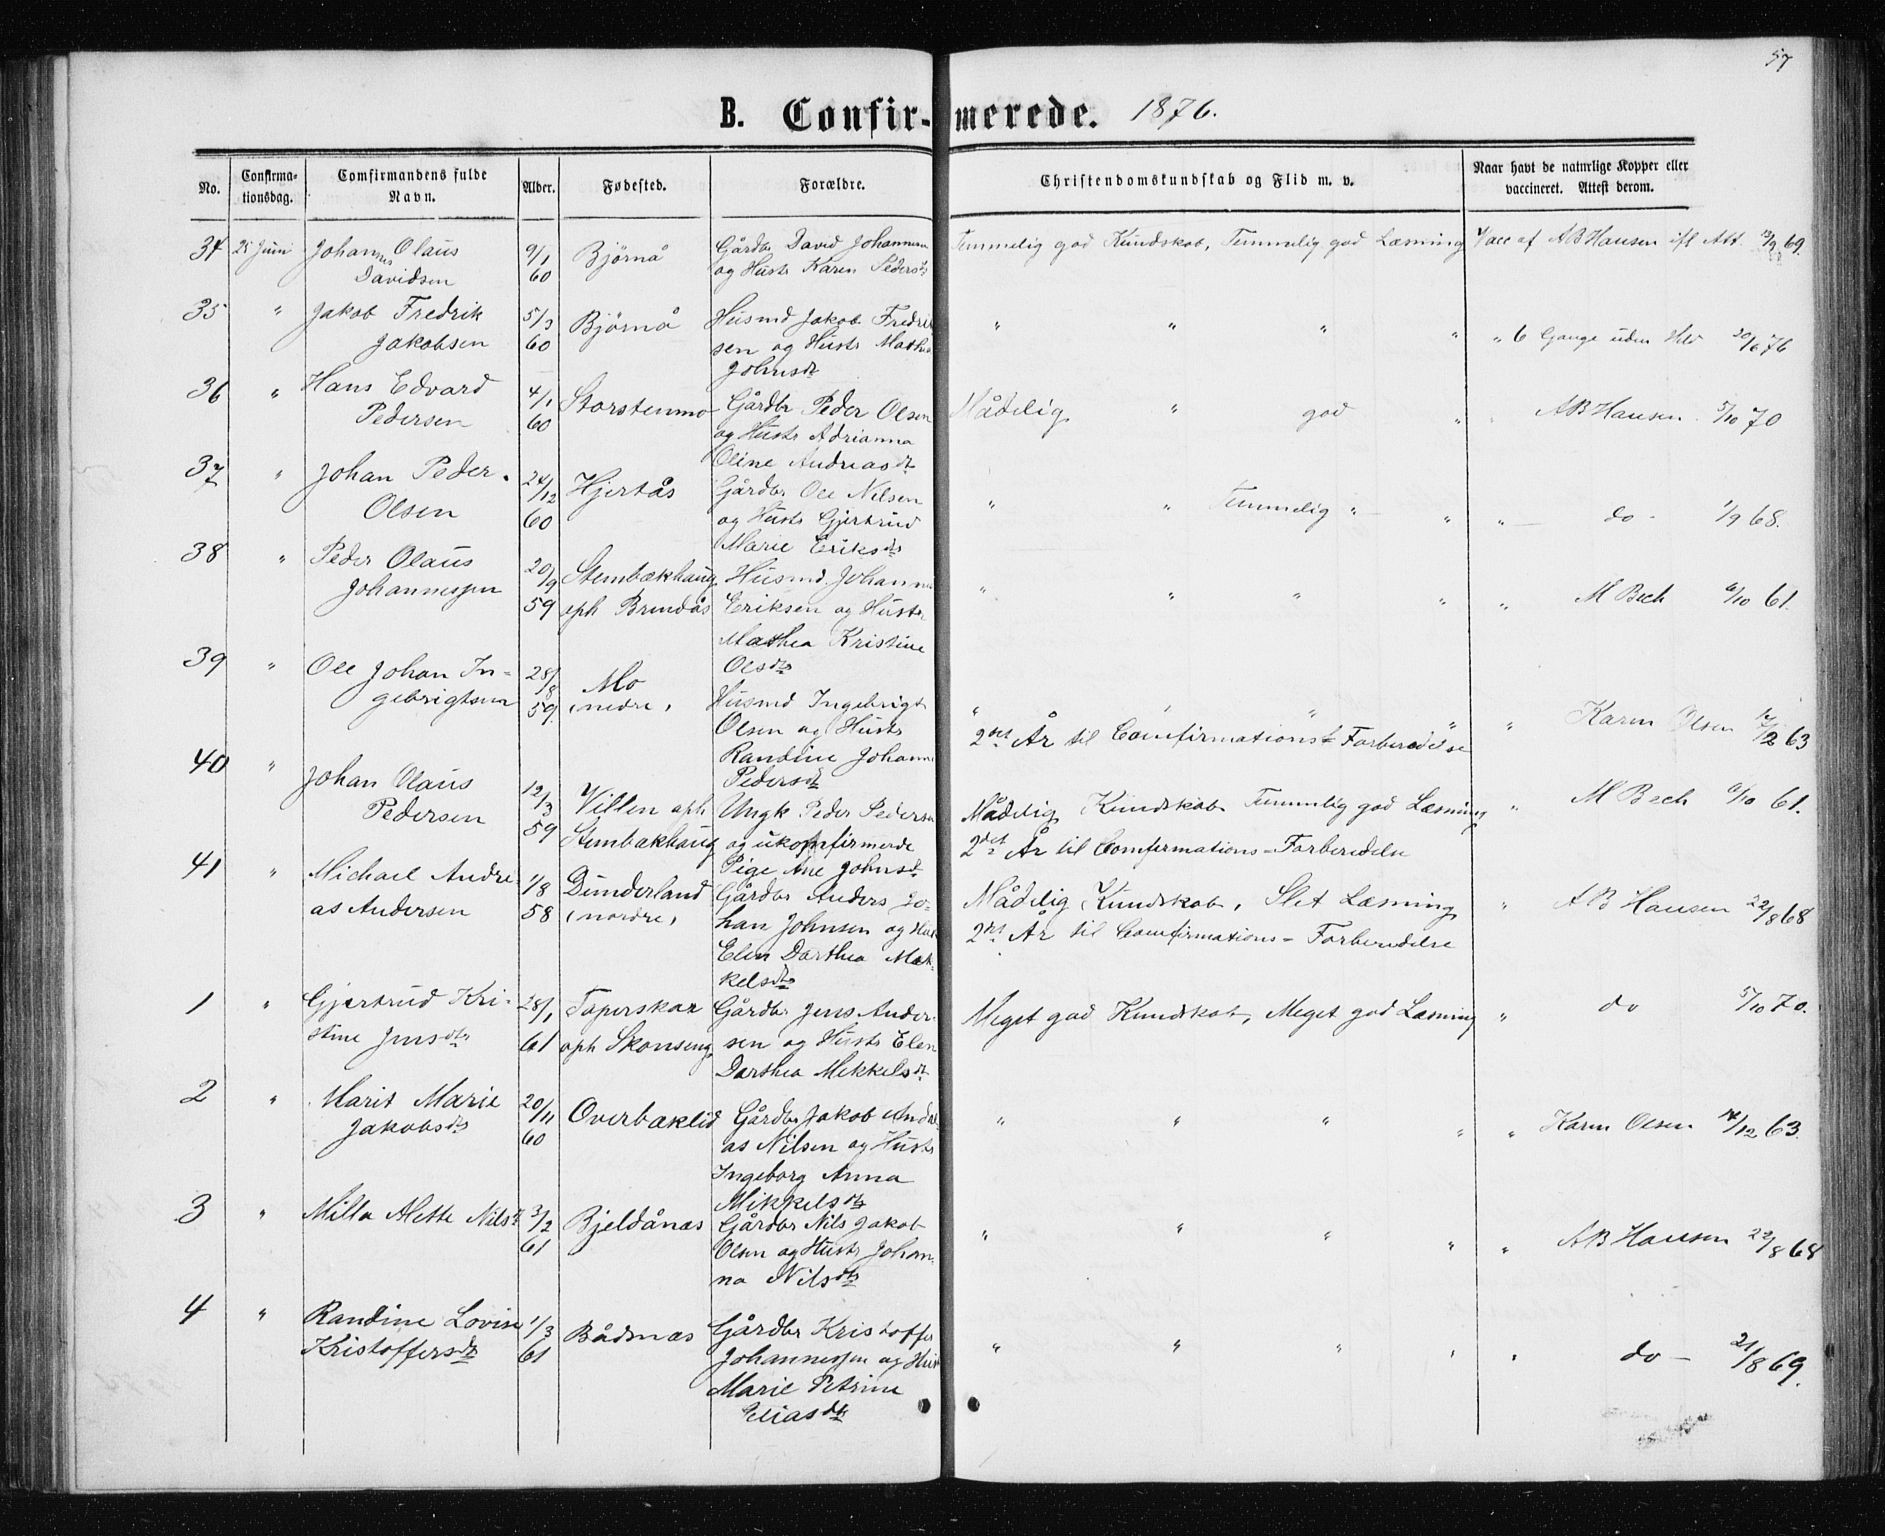 57
B. Confir- merede. 1876.
No.
Confirma-
tionsdag.
Comfirmandens fulde
Navn.
Alder.
Fødested.
Forældre.
Christendomskundskab og Flid m. v.
Naar havt de naturlige Kopper eller
vaccineret. Attest derom.
34 25 Juni Johannes Olaus 9/1 Bjørnå Gårdbr David Johannesen Temmelig god Kundskab, Temmelig god Læsning Vacc af AB Hansen ifl Att 69.
Davidsen 60 og Hustr Karen Pedersdtr
35 " Jakob Fredrik 5/3 Bjørnå Husmd Jakob Fredrik " " " " " 6 Gange uden 20/6 76
Jakobsen 60 sen og Hustr
Johnsdtr
36 " Hans Edvard 4/1 Storstenmo Gårdbr Peder Olsen Mådelig " god " " AB Hansen 5/10 70
Pedersen 60 og Hustr Adrianna
Oline Andreasdtr
37 " Johan Peder 24/12 Hjertås Gårdbr Ole Nilsen " " Temmelig " " " do 1/9 68.
Olsen 60 og Hustr Gjertrud
Marie Eriksdtr
38 " Peder Olaus 20/9 Stenbækhaug Husmd. Johannes " " " " " M Bech 6/10 61.
Johannessen 59 oph Brendås Eriksen og Hustr
Mathea Kristine
Olsdtr
39 " Ole Johan In- 28/8 Mo Husmd Ingebrigt " " " " " Karen Olsen 63
gebrigtsen 59 (nedre) Olsen og Hustr 2det År til Comfirmations-Forberedelse
Randine Johanna
Pedersdtr
40 " Johan Olaus 12/3 Villen oph Ungk Peder Pedersen Mådelig Kundskab Temmelig god Læsning " M Bech 6/10 61.
Pedersen 59 Stenbækhaug og ukomfirmerde 2det År til Comfirmations-Forberedelse
Pige Ane Johnsdtr
41 " Michael Andre- 1/8 Dunderland Gårdbr Anders Jo- Mådelig Kundskab, Slet Læsning " AB Hansen 22/8 68
as Andersen 58 (nordre) han Johnsen og Hustr 2det År til Comfirmations-Forberedelse
Elen Dorthea Mek-
kelsdtr
1 " Gjertrud Kri- 28/1 Toperskar Gårdbr Jens Ander- Meget god Kundskab, Meget god Læsning " do 5/10 70.
stine Jensdtr 61 oph Skonseng sen og Hustr Elen
Dorthea Mekkelsdtr
2 " Marit Marie 20/11 Overbæklid Gårdbr Jakob Andre " " " " " Karen Olsen 14/12 63.
Jakobsdtr 60 as Nilsen og Hustr
Ingeborg Anna
Mikkelsdtr
3 " Milla Alette Nilsdtr 3/2 Bjeldånæs Gårdbr Nils Jakob " " " " " AB Hansen 22/8 68
61 Olsen og Hustr Johan-
na Nilsdtr
4 " Randine Lovise 1/3 Bådnæs Gårdbr Kristoffer " " " " " do 21/8 69.
Kristoffersdtr 61 Johannessen og Hust
Marie Petrine
Eliasdtr